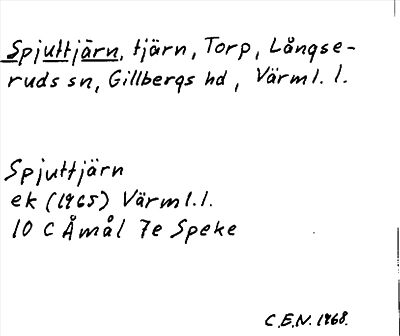 Spjuttjärn, tjärn, Torp, Långse-
ruds sn, Gillbergs hd, Värml. l.
Spjuttjärn
ek (1965) Värml.l.
10 C Åmål 7e Speke
C.E.N. 1968.